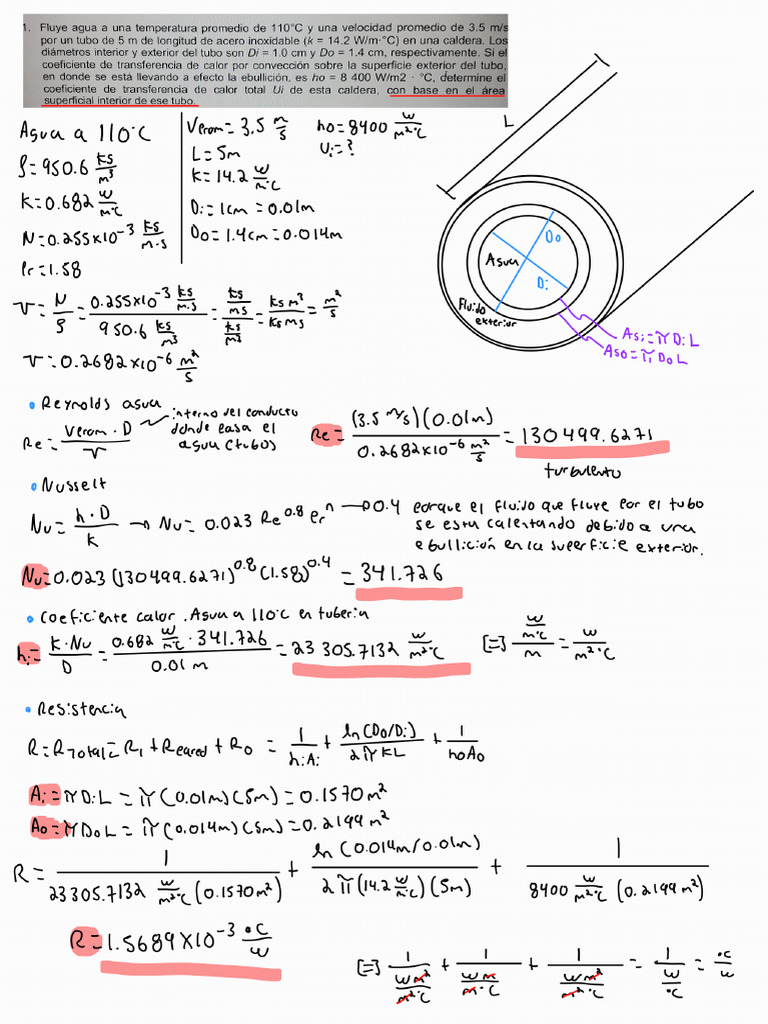 1. Fluye agua a una temperatura promedio de 110°C y una velocidad promedio de 3.5 m/s
por un tubo de 5 m de longitud de acero inoxidable (k = 14.2 W/m·°C) en una caldera. Los
diámetros interior y exterior del tubo son Di = 1.0 cm y Do = 1.4 cm, respectivamente. Si el
coeficiente de transferencia de calor por convección sobre la superficie exterior del tubo,
en donde se está llevando a efecto la ebullición, es ho = 8 400 W/m2 · °C, determine el
coeficiente de transferencia de calor total Ui de esta caldera, con base en el área
superficial interior de ese tubo.
Agua a 110°C
ρ=950.6 kg/m³
K=0.682 W/m°C
μ=0.255x10⁻³ kg/m·s
Pr=1.58
Vprom=3.5 m/s
L=5m
K=14.2 W/m°C
Di=1cm=0.01m
Do=1.4cm=0.014m
ho=8400 W/m²°C
Ui=?
L
Do
Agua
Di
Fluido exterior
Asi=πDiL
Aso=πDoL
ν=μ/ρ=0.255x10⁻³ kg/m·s / 950.6 kg/m³ = kg/ms / kg/m³ = kg m³/kg ms = m²/s
ν=0.2682x10⁻⁶ m²/s
• Reynolds agua
Re=Vprom·D/ν
interno del conducto
donde pasa el
agua (tubo)
Re=(3.5 m/s)(0.01m)/0.2682x10⁻⁶ m²/s=130499.6271
turbulento
• Nusselt
Nu=h·D/K → Nu=0.023 Re^0.8 Pr^n → 0.4 porque el fluido que fluye por el tubo
se esta calentando debido a una
ebullición en la superficie exterior.
Nu=0.023(130499.6271)^0.8(1.58)^0.4=341.726
• Coeficiente calor. Agua a 110°C en tuberia
hi=K·Nu/D=0.682 W/m°C·341.726/0.01 m=23 305.7132 W/m²°C [=] W/m°C / m = W/m²·°C
• Resistencia
R=RTotal=Ri+Rpared+Ro = 1/hiAi + ln(Do/Di)/2πKL + 1/hoAo
Ai=πDiL=π(0.01m)(5m)=0.1570m²
Ao=πDoL=π(0.014m)(5m)=0.2199m²
R=1/23305.7132 W/m²°C (0.1570m²) + ln(0.014m/0.01m)/2π(14.2 W/m°C)(5m) + 1/8400 W/m²°C (0.2199m²)
R=1.5689x10⁻³ °C/W
[=] 1/(W m²/m²°C) + 1/(W m/m·°C) + 1/(W m²/m²·°C) = 1/(W/°C) = °C/W